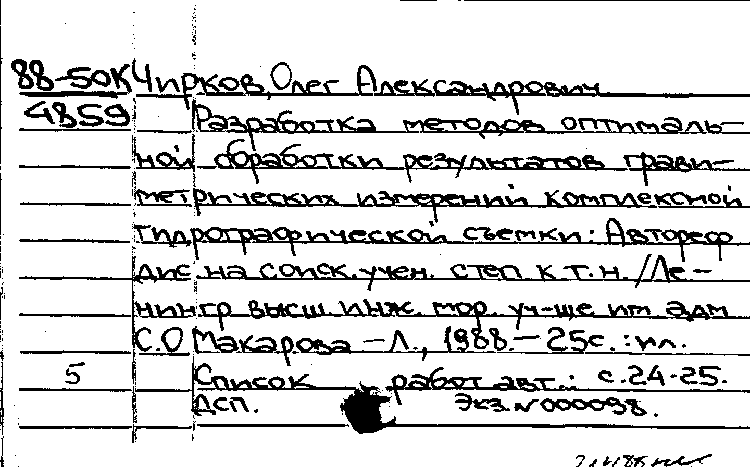 88-50К Чирков, Олег Александрович
4859 Разработка методов оптималь-
ной обработки результатов грави-
метрических измерений комплексной
гидрографической съемки: Автореф
дис. на соиск. учен. степ к.т.н. /Ле-
нингр высш. инж. мор. уч-ще им адм
С.О Макарова - Л., 1988. - 25с. : ил.
5 Список работ авт.: с.24-25.
ДСП. Экз. N000098.